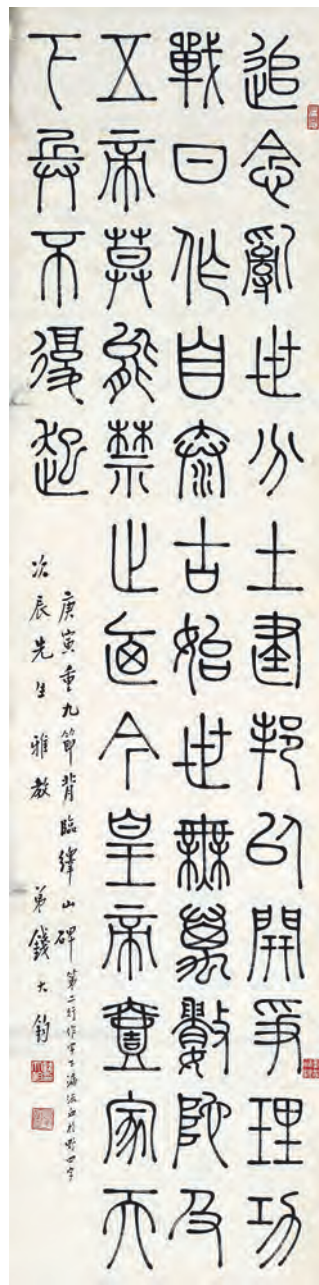 追念亂世分土建邦以開爭理功
戰日作自泰古始世無萬數阤及
五帝莫能禁止迺今皇帝壹家天
下兵不復起
庚寅重九節背臨繹山碑 第二行作字下漏流血於野四字
次辰先生雅教 弟錢大鈞